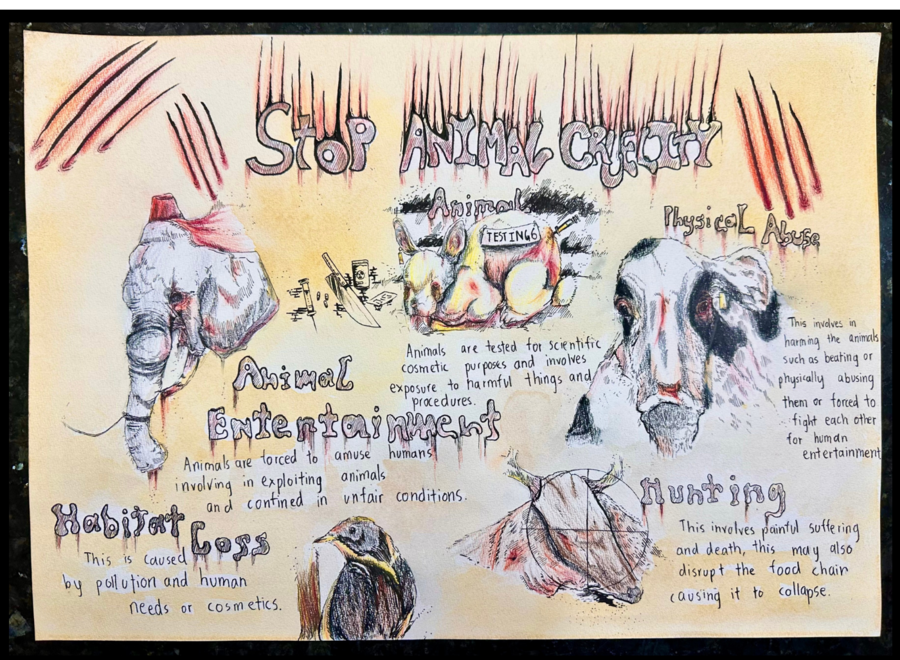 STOP ANIMAL CRUELTY
Animal
TESTING
Animals are tested for scientific
cosmetic purposes and involves
exposure to harmful things and
procedures.
Physical Abuse
This involves in
harming the animals
such as beating or
physically abusing
them or forced to
fight each other
for human
entertainment
Animal
Entertainment
Animals are forced to amuse humans
involving in exploiting animals
and confined in unfair conditions.
Habitat
Loss
This is caused
by pollution and human
needs or cosmetics.
Hunting
This involves painful suffering
and death, this may also
disrupt the food chair
causing it to collapse.